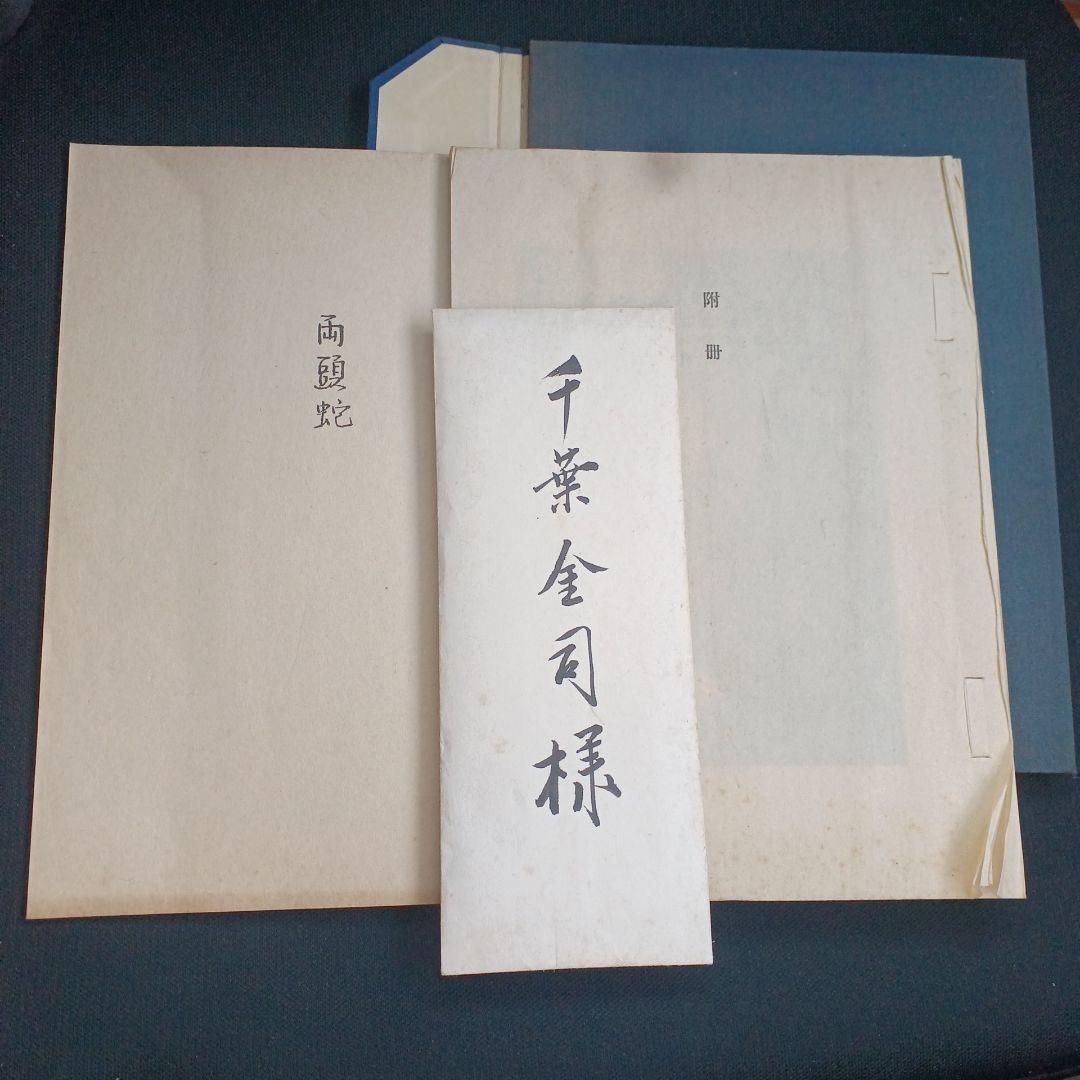 附冊
千葉金司様
両頭蛇